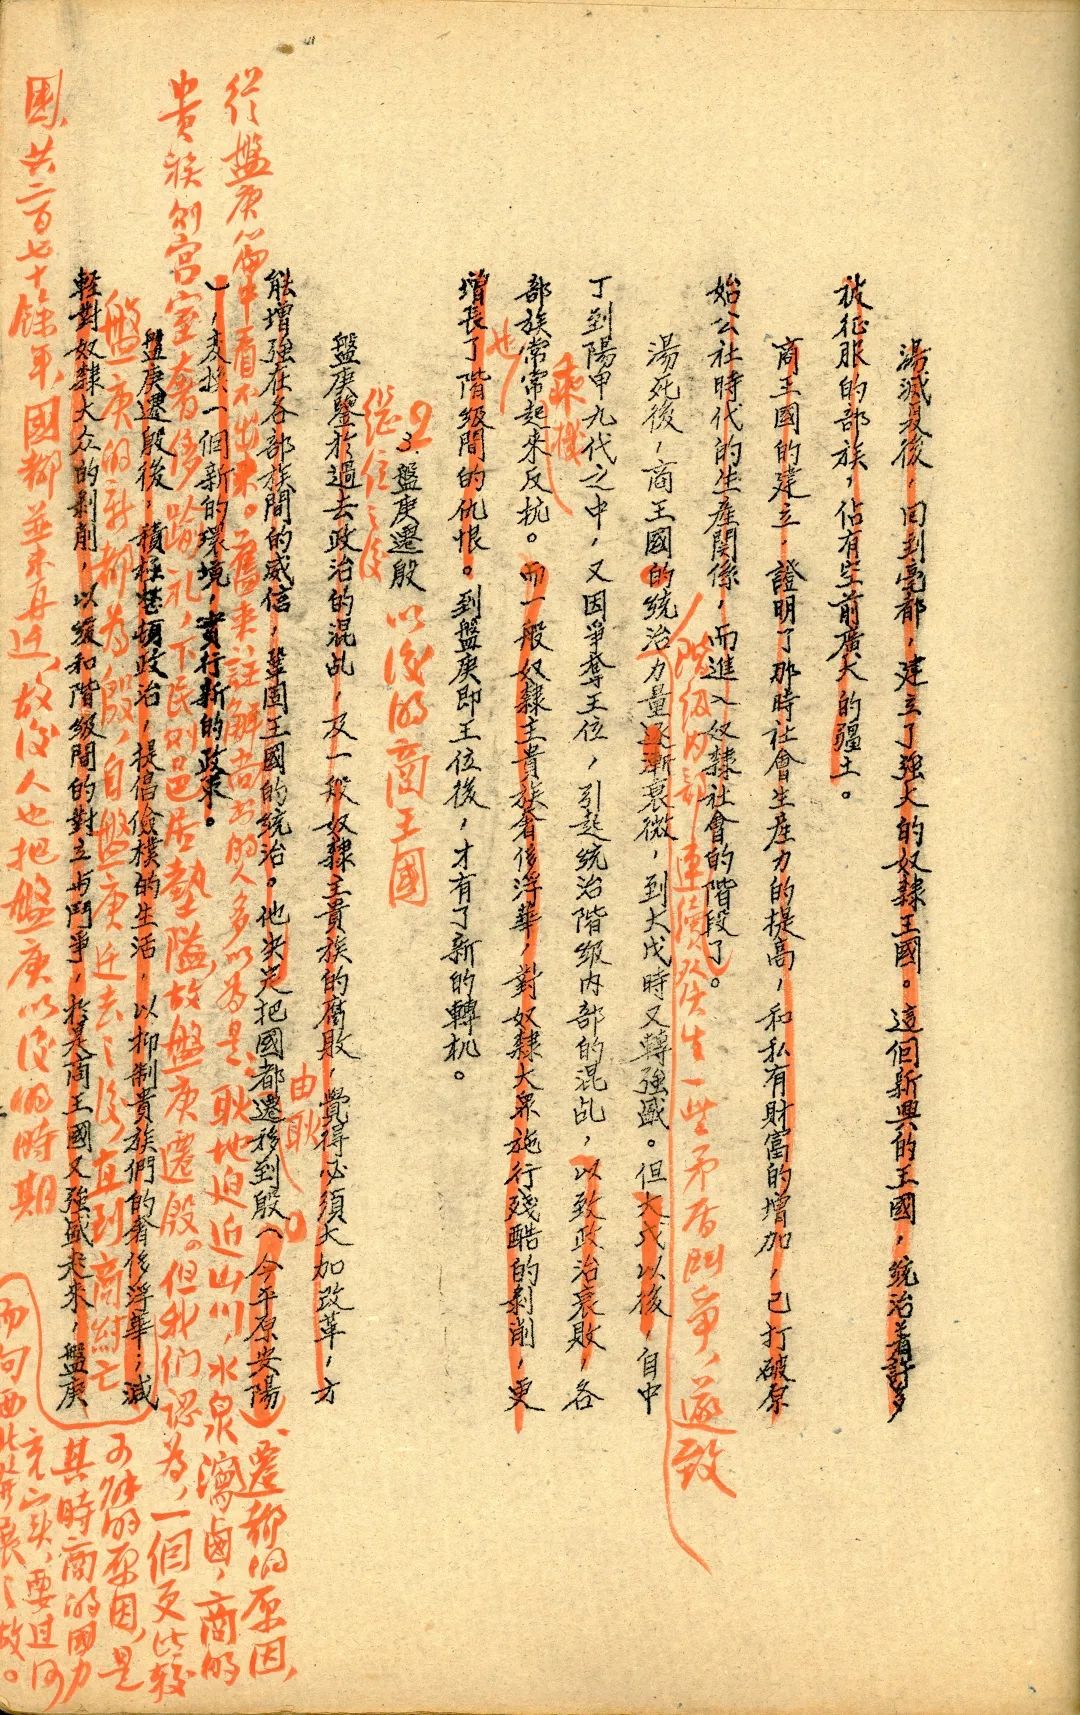 湯滅夏後，回到亳都，建立了強大的奴隸王國。這個新興的王國，統治着許多
被征服的部族，佔有空前廣大的疆土。
商王國的建立，證明了那時社會生產力的提高，和私有財富的增加，已打破原
始公社時代的生產関係，而進入奴隸社會的階段了。
階級內部連續發生一些矛盾鬥爭，遂致
湯死後，商王國的統治力量逐漸衰微，到大戊時又轉強盛。但大戊以後，自中
丁到陽甲九代之中，又因爭奪王位，引起統治階級內部的混乱，以致政治衰敗，各
乘機
部族常常起來反抗。而一般奴隸主貴族奢侈浮華，對奴隸大眾施行殘酷的剝削，更
也
增長了階級間的仇恨。到盤庚即王位後，才有了新的轉机。
2
3.盤庚遷殷
以後的商王國
繼位之後
盤庚鑒於過去政治的混乱，及一般奴隸主貴族的腐敗，覺得必須大加改革，方
由耿
能增強在各部族間的威信，鞏固王國的統治。他决定把國都遷移到殷（今平原安陽
），変換一個新的環境，實行新的政策。
遷都的原因，
從盤庚篇中看不出來。舊來註解尚書的人多以為是耿地迫近山川，水泉瀉鹵，商的
貴族則宮室奢侈踰礼，下民則邑居墊隘，故盤庚遷殷。但我们認為，一個更比較
可能的原因，是
其時商的國力
充实，要过河
而向西北發展之故。
盤庚遷殷後，積極整頓政治，提倡儉樸的生活，以抑制貴族們的奢侈浮華；減
輕對奴隸大众的剝削，以緩和階級間的對立与鬥爭，於是商王國又強盛起來，盤庚
盤庚的新都為殷，自盤庚迁去之後，直到商紂亡
國，共二百七十餘年，國都並未再迁，故後人也把盤庚以後的時期